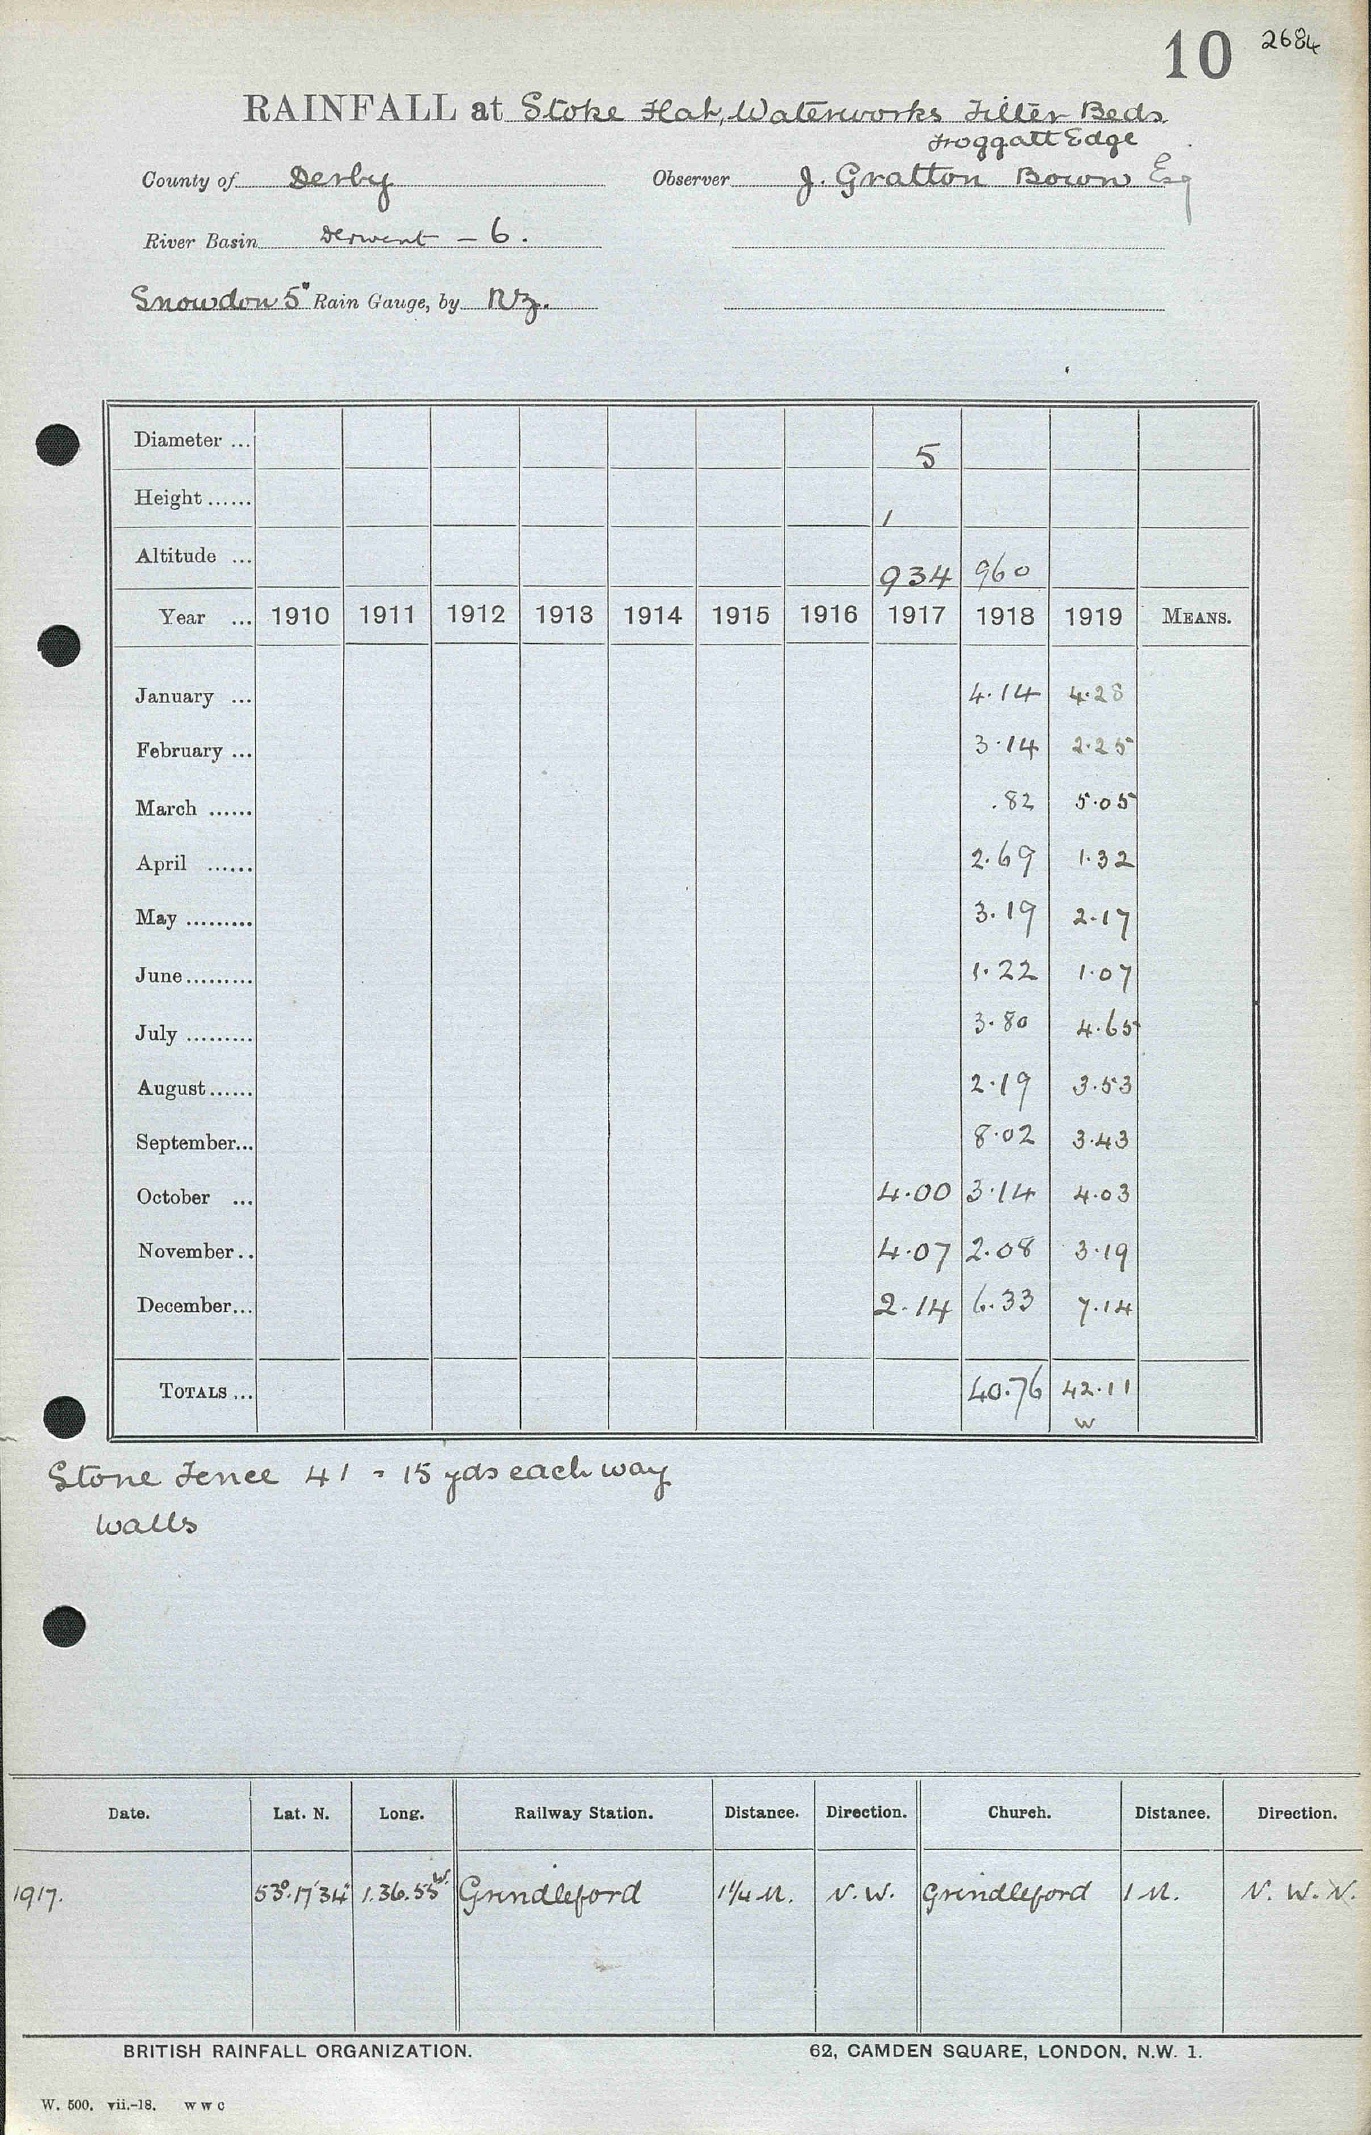 10 2684
RAINFALL at Stoke Flat, Waterworks Filter Beds
Froggatt Edge
County of Derby Observer J. Gratton Bown Esq
River Basin Derwent - 6.
Snowdon 5" Rain Gauge, by NZ.
Diameter ... 5
Height ...... 1
Altitude ... 934 960
Year ... 1910 1911 1912 1913 1914 1915 1916 1917 1918 1919 MEANS.
January ... 4.14 4.28
February ... 3.14 2.25
March ...... .82 5.05
April ...... 2.69 1.32
May ......... 3.19 2.17
June......... 1.22 1.07
July ......... 3.80 4.65
August...... 2.19 3.53
September... 8.02 3.43
October ... 4.00 3.14 4.03
November.. 4.07 2.08 3.19
December... 2.14 6.33 7.14
TOTALS ... 40.76 42.11
w
Stone Fence 4' - 15 yds each way
walls
Date. Lat. N. Long. Railway Station. Distance. Direction. Church. Distance. Direction.
1917. 53°.17'34" 1.36.55 W. Grindleford 1¼ M. N.W. Grindleford 1 M. N.W.N.
BRITISH RAINFALL ORGANIZATION. 62, CAMDEN SQUARE, LONDON, N.W. 1.
W. 500. vii.-18. W W C